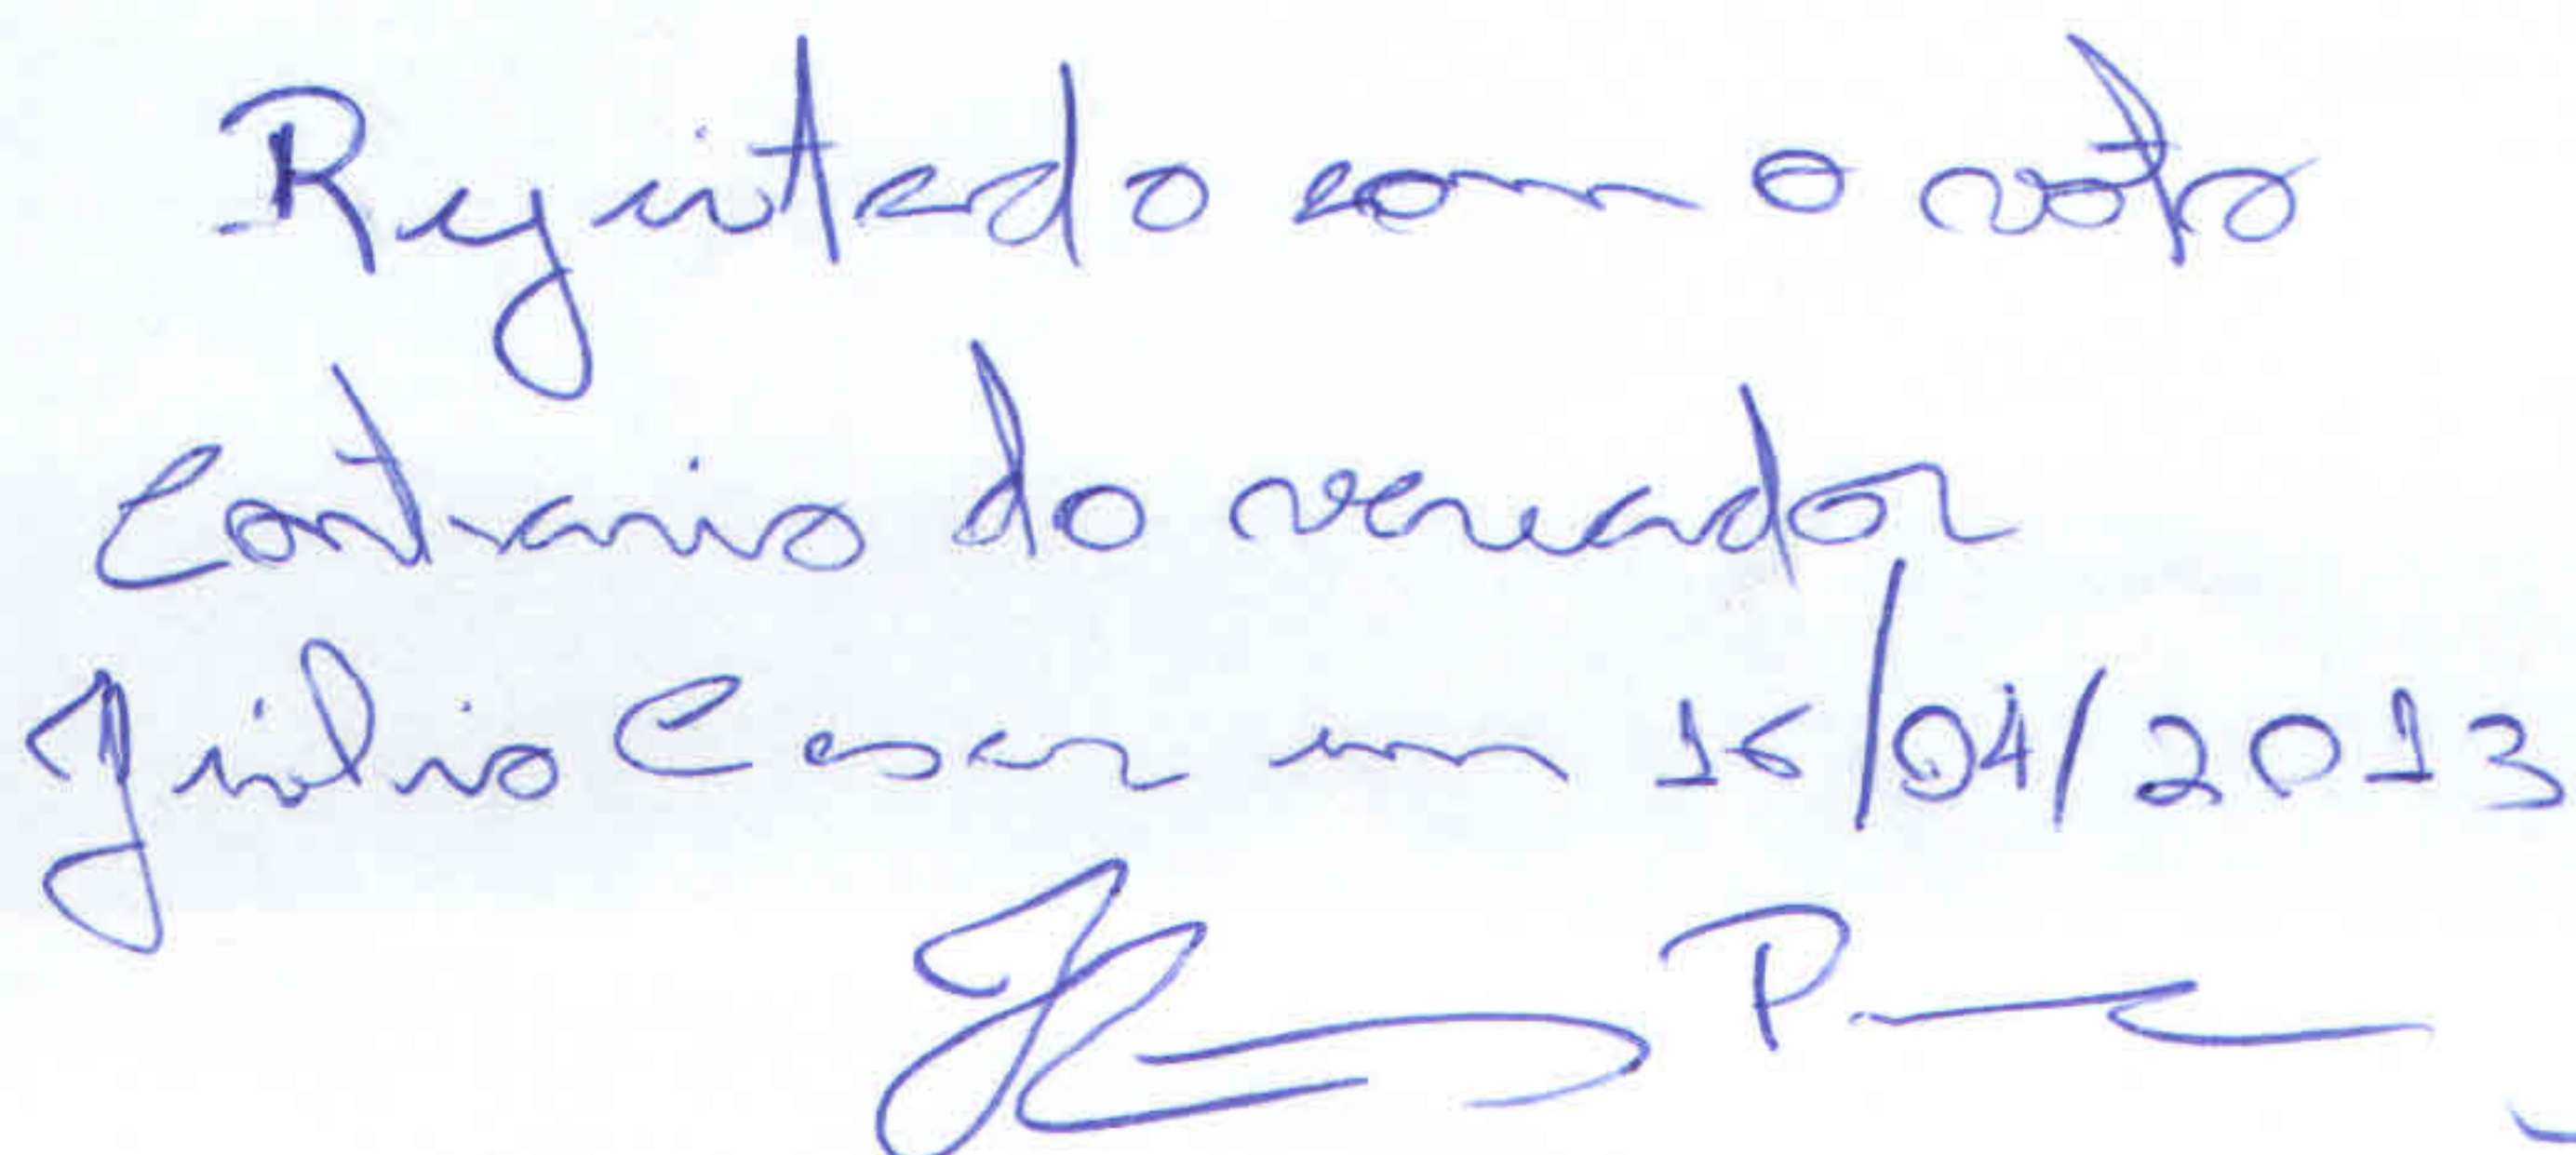 Rejeitado com o voto
Contrario do vereador
Júlio Cesar em 16/04/2013